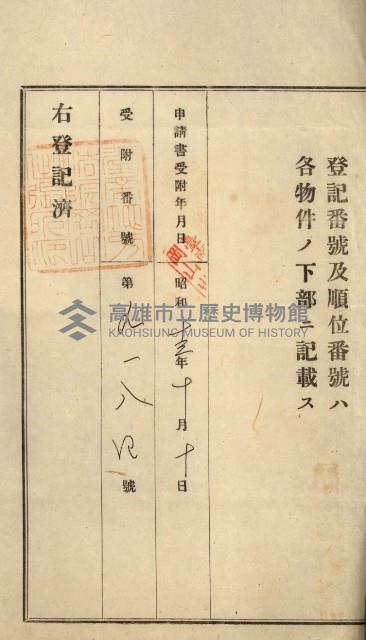 登記番號及順位番號ハ
各物件ノ下部ニ記載ス
申請書受附年月日
昭和十三年十月十日
受附番號
第九一八四號
右登記濟
高雄市立歷史博物館
KAOHSIUNG MUSEUM OF HISTORY